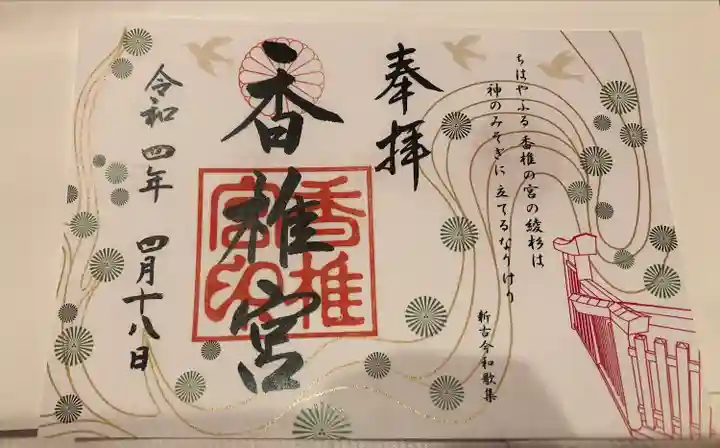 ちはやふる 香椎の宮の綾杉は
神のみそぎに 立てるなりけり
新古今和歌集
奉拝
香椎宮
香椎
宮印
令和四年 四月十八日